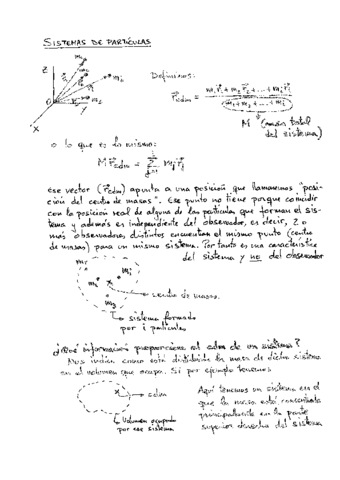 SISTEMAS DE PARTÍCULAS
Z
Y
X
Definimos:
r⃗cdm = (m₁r⃗₁ + m₂r⃗₂ + ... + mᵢr⃗ᵢ) / (m₁ + m₂ + ... + mᵢ)
M (masa total
del sistema)
o lo que es lo mismo:
M r⃗cdm = Σ mⱼ r⃗ⱼ
ese vector (r⃗cdm) apunta a una posición que llamaremos "posi-
ción del centro de masas". Ese punto no tiene porque coincidir
con la posición real de alguna de las partículas que forman el sis-
tema y además es independiente del observador, es decir, 2 o
más observadores distintos encuentran el mismo punto (centro
de masas) para un mismo sistema. Por tanto es una característica
del sistema y no del observador
centro de masas.
sistema formado
por i partículas
¿Qué información proporciona el cdm de un sistema?
Nos indica como está distribuida la masa de dicho sistema
en el volumen que ocupa. Si por ejemplo tenemos
cdm
Volumen ocupado
por ese sistema
Aquí tenemos un sistema en el
que la masa está concentrada
principalmente en la parte
superior derecha del sistema